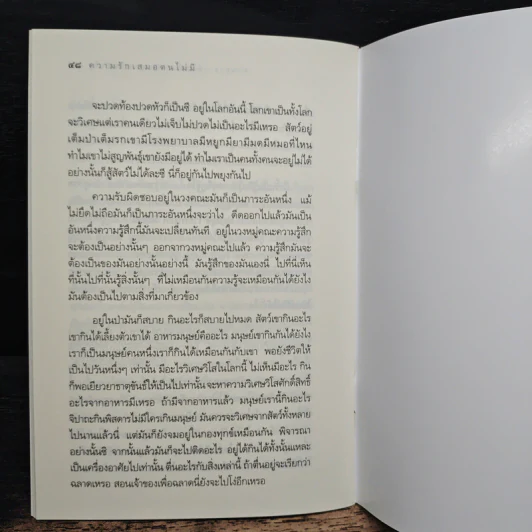 ๔๘ ความรักเสมอตนไม่มี
จะปวดท้องปวดหัวก็เป็นซี อยู่ในโลกอันนี้ โลกเขาเป็นทั้งโลก
จะวิเศษแต่เราคนเดียวไม่เจ็บไม่ปวดไม่เป็นอะไรมีเหรอ สัตว์อยู่
เต็มป่าเต็มรกเขามีโรงพยาบาลมีหยูกมียามีมดมีหมอที่ไหน
ทำไมเขาไม่สูญพันธุ์เขายังมีอยู่ได้ ทำไมเราเป็นคนทั้งคนจะอยู่ไม่ได้
อย่างนั้นก็สู้สัตว์ไม่ได้ละซี นี่ก็อยู่กันไปพยุงกันไป
ความรับผิดชอบอยู่ในวงคณะมันก็เป็นภาระอันหนึ่ง แม้
ไม่ยึดไม่ถือมันก็เป็นภาระอันหนึ่งจะว่าไง ดีดออกไปแล้วมันเป็น
อันหนึ่งความรู้สึกนี้มันจะเปลี่ยนทันที อยู่ในวงหมู่คณะความรู้สึก
จะต้องเป็นอย่างนั้นๆ ออกจากวงหมู่คณะไปแล้ว ความรู้สึกมันจะ
ต้องเป็นของมันอย่างนั้นอย่างนี้ มันรู้สึกของมันเองนี่ ไปที่นี่เห็น
ที่นั้นไปที่นั้นรู้สิ่งนั้นๆ ที่ไม่เหมือนกันความรู้จะเหมือนกันได้ยังไง
มันต้องเป็นไปตามสิ่งที่มาเกี่ยวข้อง
อยู่ในป่ามันก็สบาย กินอะไรก็สบายไปหมด สัตว์เขากินอะไร
เขากินได้เลี้ยงตัวเขาได้ อาหารมนุษย์คืออะไร มนุษย์เขากินกันได้ยังไง
เราก็เป็นมนุษย์คนหนึ่งเราก็กินได้เหมือนกันกับเขา พอยังชีวิตให้
เป็นไปวันหนึ่งๆ เท่านั้น มีอะไรวิเศษวิโสในโลกนี้ ไม่เห็นมีอะไร กิน
ก็พอเยียวยาธาตุขันธ์ให้เป็นไปเท่านั้นจะหาความวิเศษวิโสศักดิ์สิทธิ์
อะไรจากอาหารมีเหรอ ถ้ามีจากอาหารแล้ว มนุษย์เรานี้กินอะไร
จิปาถะกินพิสดารไม่มีใครเกินมนุษย์ มันควรจะวิเศษจากสัตว์ทั้งหลาย
ไปนานแล้วนี่ แต่มันก็ยังจมอยู่ในกองทุกข์เหมือนกัน พิจารณา
อย่างนั้นซี จากนั้นแล้วมันก็จะไปติดอะไร อยู่ได้กินได้ทั้งนั้นแหละ
เป็นเครื่องอาศัยไปเท่านั้น ตื่นอะไรกับสิ่งเหล่านี้ ถ้าตื่นอยู่จะเรียกว่า
ฉลาดเหรอ สอนเจ้าของเพื่อฉลาดนี่ยังจะไปโง่อีกเหรอ